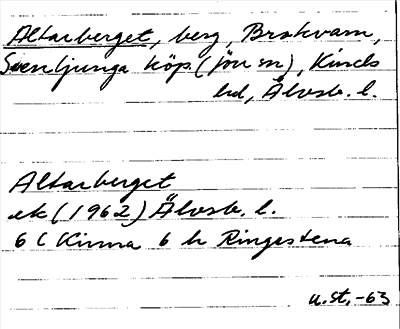 Altarberget, berg, Brokvarn,
Svenljunga köp. (förr sn), Kinds
hd, Älvsb. l.
Altarberget
ek (1962) Älvsb. l.
6 C Kinna 6 h Ringestena
u.st. -63